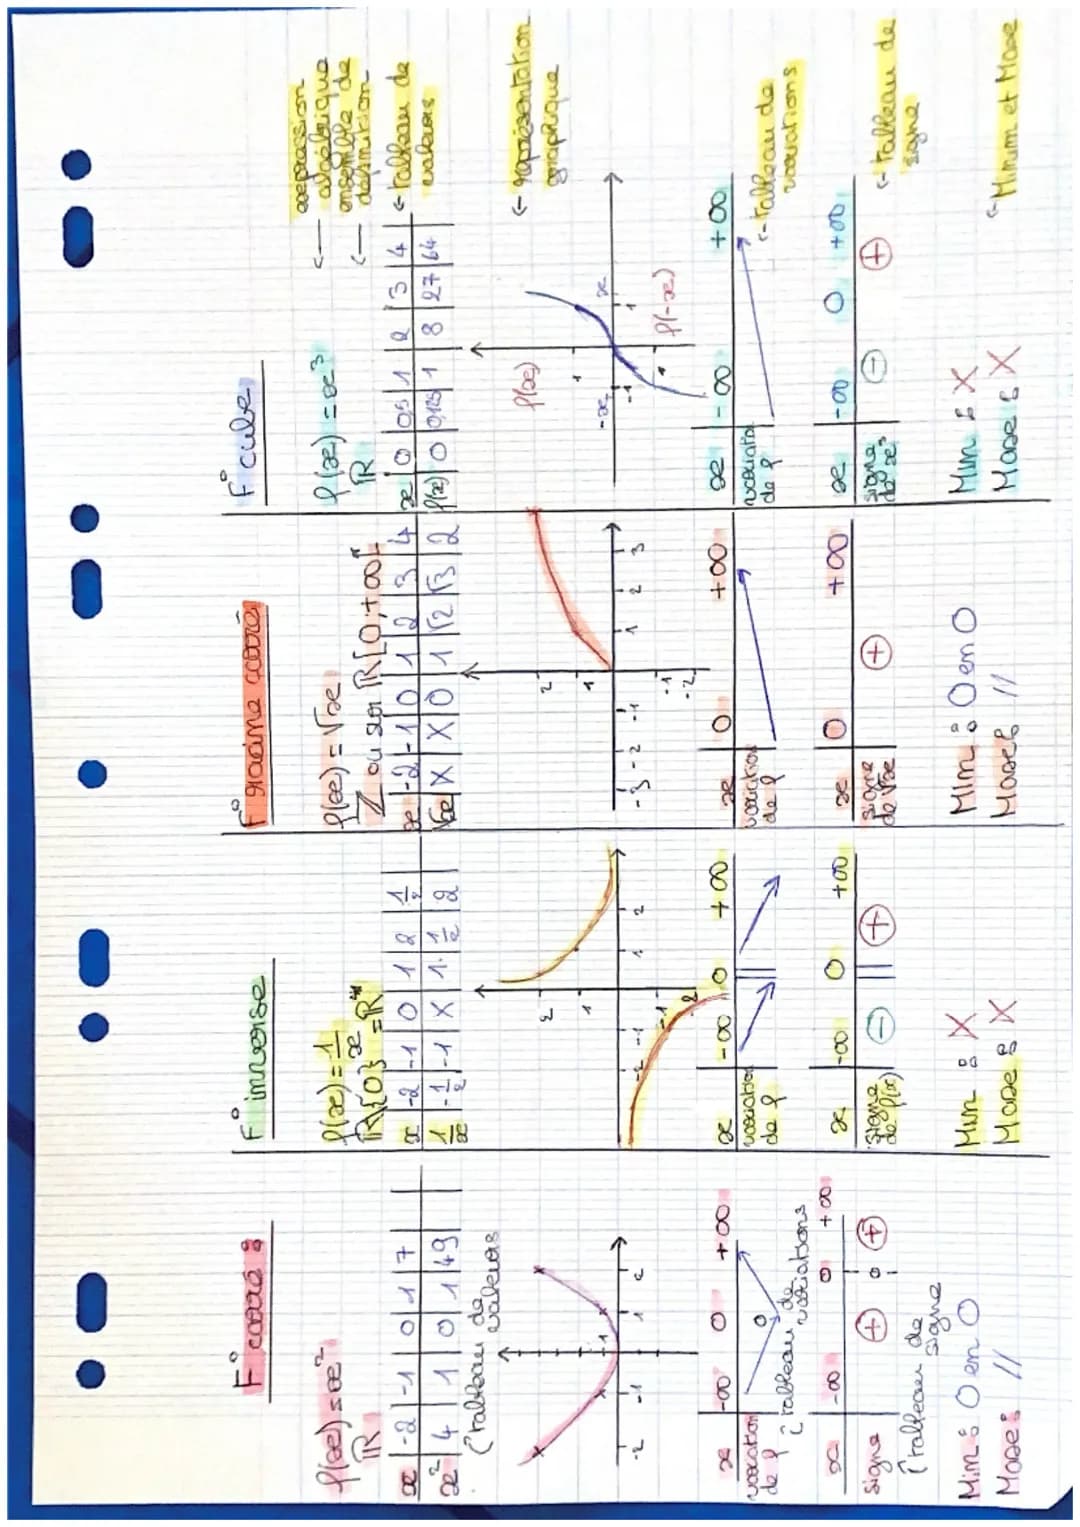 F° carré :
f(x) = x²
ℝ
x | -2 | -1 | 0 | 1 | 7
x² | 4 | 1 | 0 | 1 | 49
(tableau de valeurs
-2 -1 1 2
1
x -∞ 0 +∞
variation de f
0
(tableau de variations
x -∞ 0 +∞
signe + 0 +
(tableau de signe
Min : 0 en 0
Maxe : //
F° inverse
f(x) = 1/x
ℝ\{0} = ℝ*
x | -2 | -1 | 0 | 1 | 2 | 1/2
1/x | -1/2 | -1 | X | 1 | 1/2 | 2
2
1
-2 -1 1 2
-1
-2
x -∞ 0 +∞
variation de f
x -∞ 0 +∞
signe de f(x) - || +
Min : X
Maxe : X
F° racine carré
f(x) = √x
ou sur ℝ [0;+∞[
x | -2 | -1 | 0 | 1 | 2 | 3 | 4
√x | X | X | 0 | 1 | √2 | √3 | 2
2
1
-3 -2 -1 1 2 3
-1
-2
x 0 +∞
variation de f
x 0 +∞
signe de √x +
Min : 0 en 0
Maxe : //
F° cube
f(x) = x³
ℝ
x | 0 | 0,5 | 1 | 2 | 3 | 4
f(x) | 0 | 0,125 | 1 | 8 | 27 | 64
f(x)
1
-x -1 1 x
-1
f(-x)
x -∞ +∞
variation de f
x -∞ 0 +∞
signe de x³ - +
Min : X
Maxe : X
← expression algébrique
← ensemble de définition
← tableau de valeurs
← représentation graphique
← tableau de variations
← tableau de signe
← Minum et Maxe